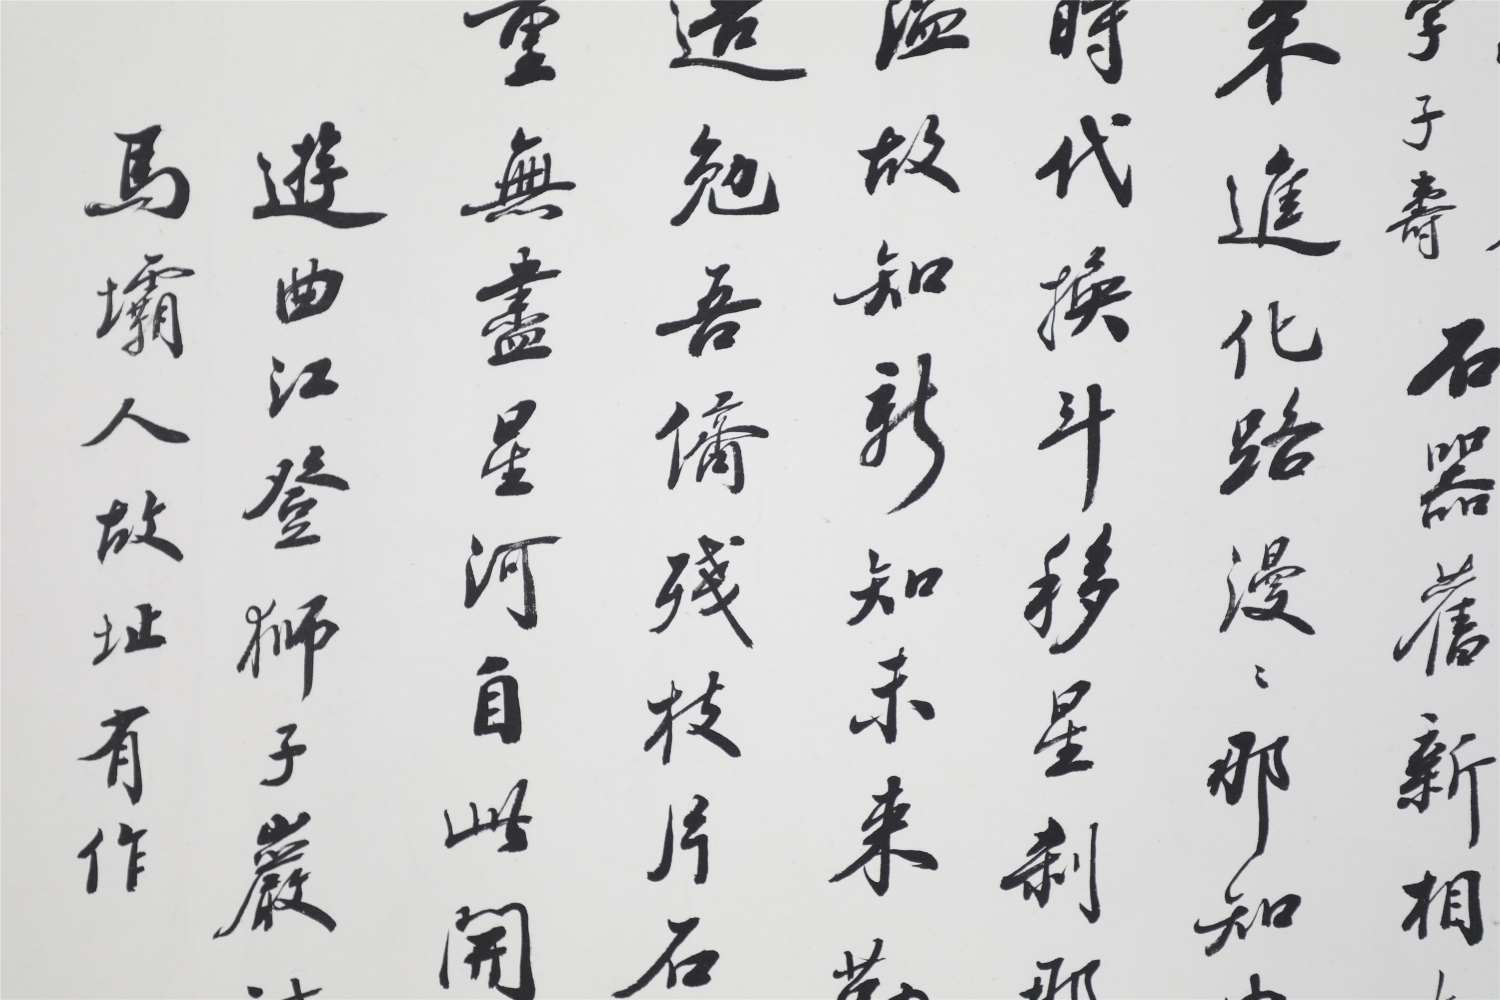 字子壽
石器舊新相
来進化路漫〻那知
時代換斗移星刹那
溫故知新知未来勤
造勉吾儕殘枝片石
重無盡星河自此開
遊曲江登獅子巖
馬壩人故址有作